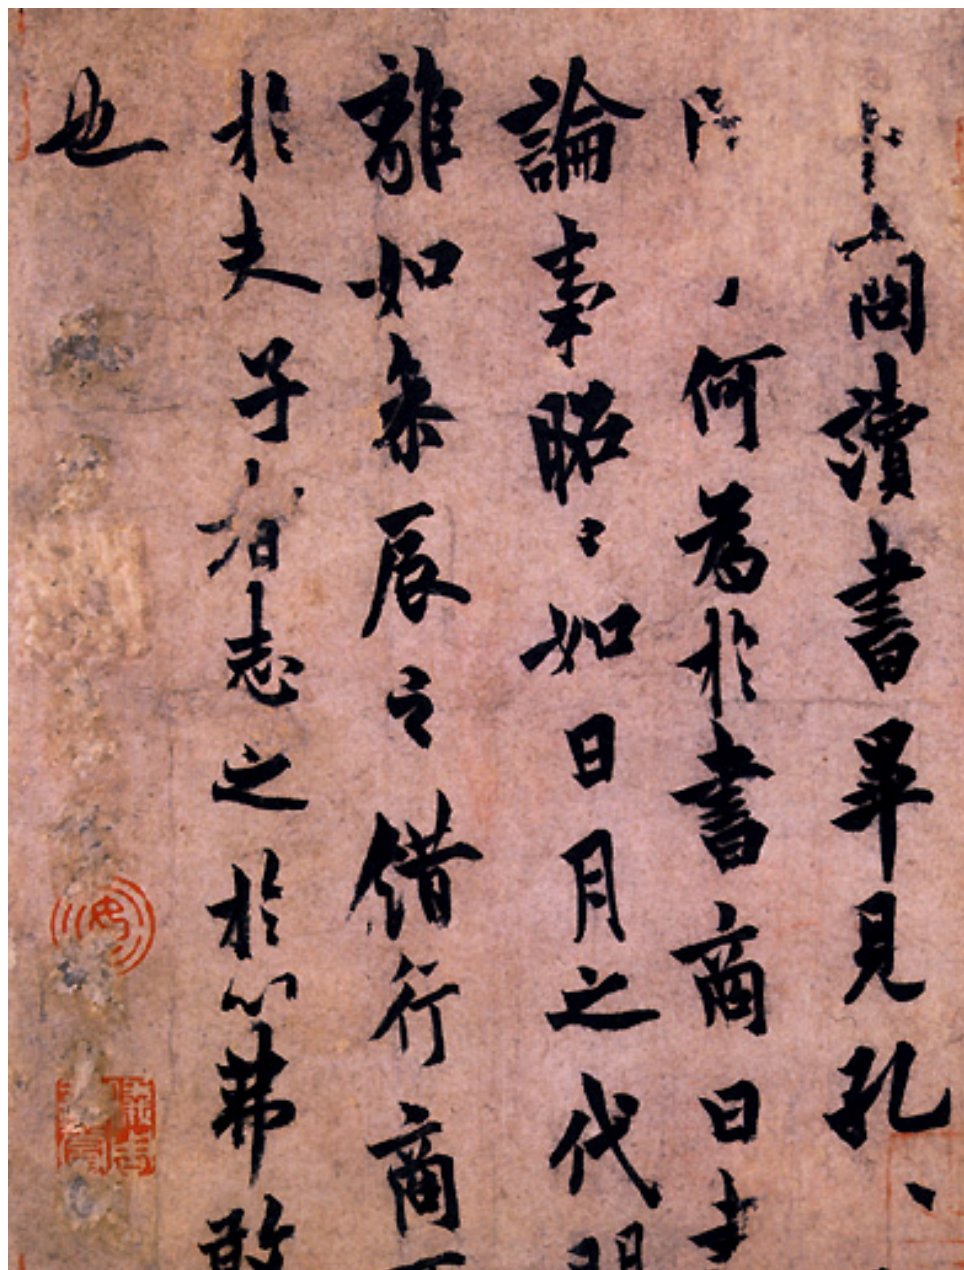 卜商讀書畢見孔
何為於書商曰書
論事昭〻如日月之代明
離如參辰之錯行商
於夫子者志之於心弗敢
也